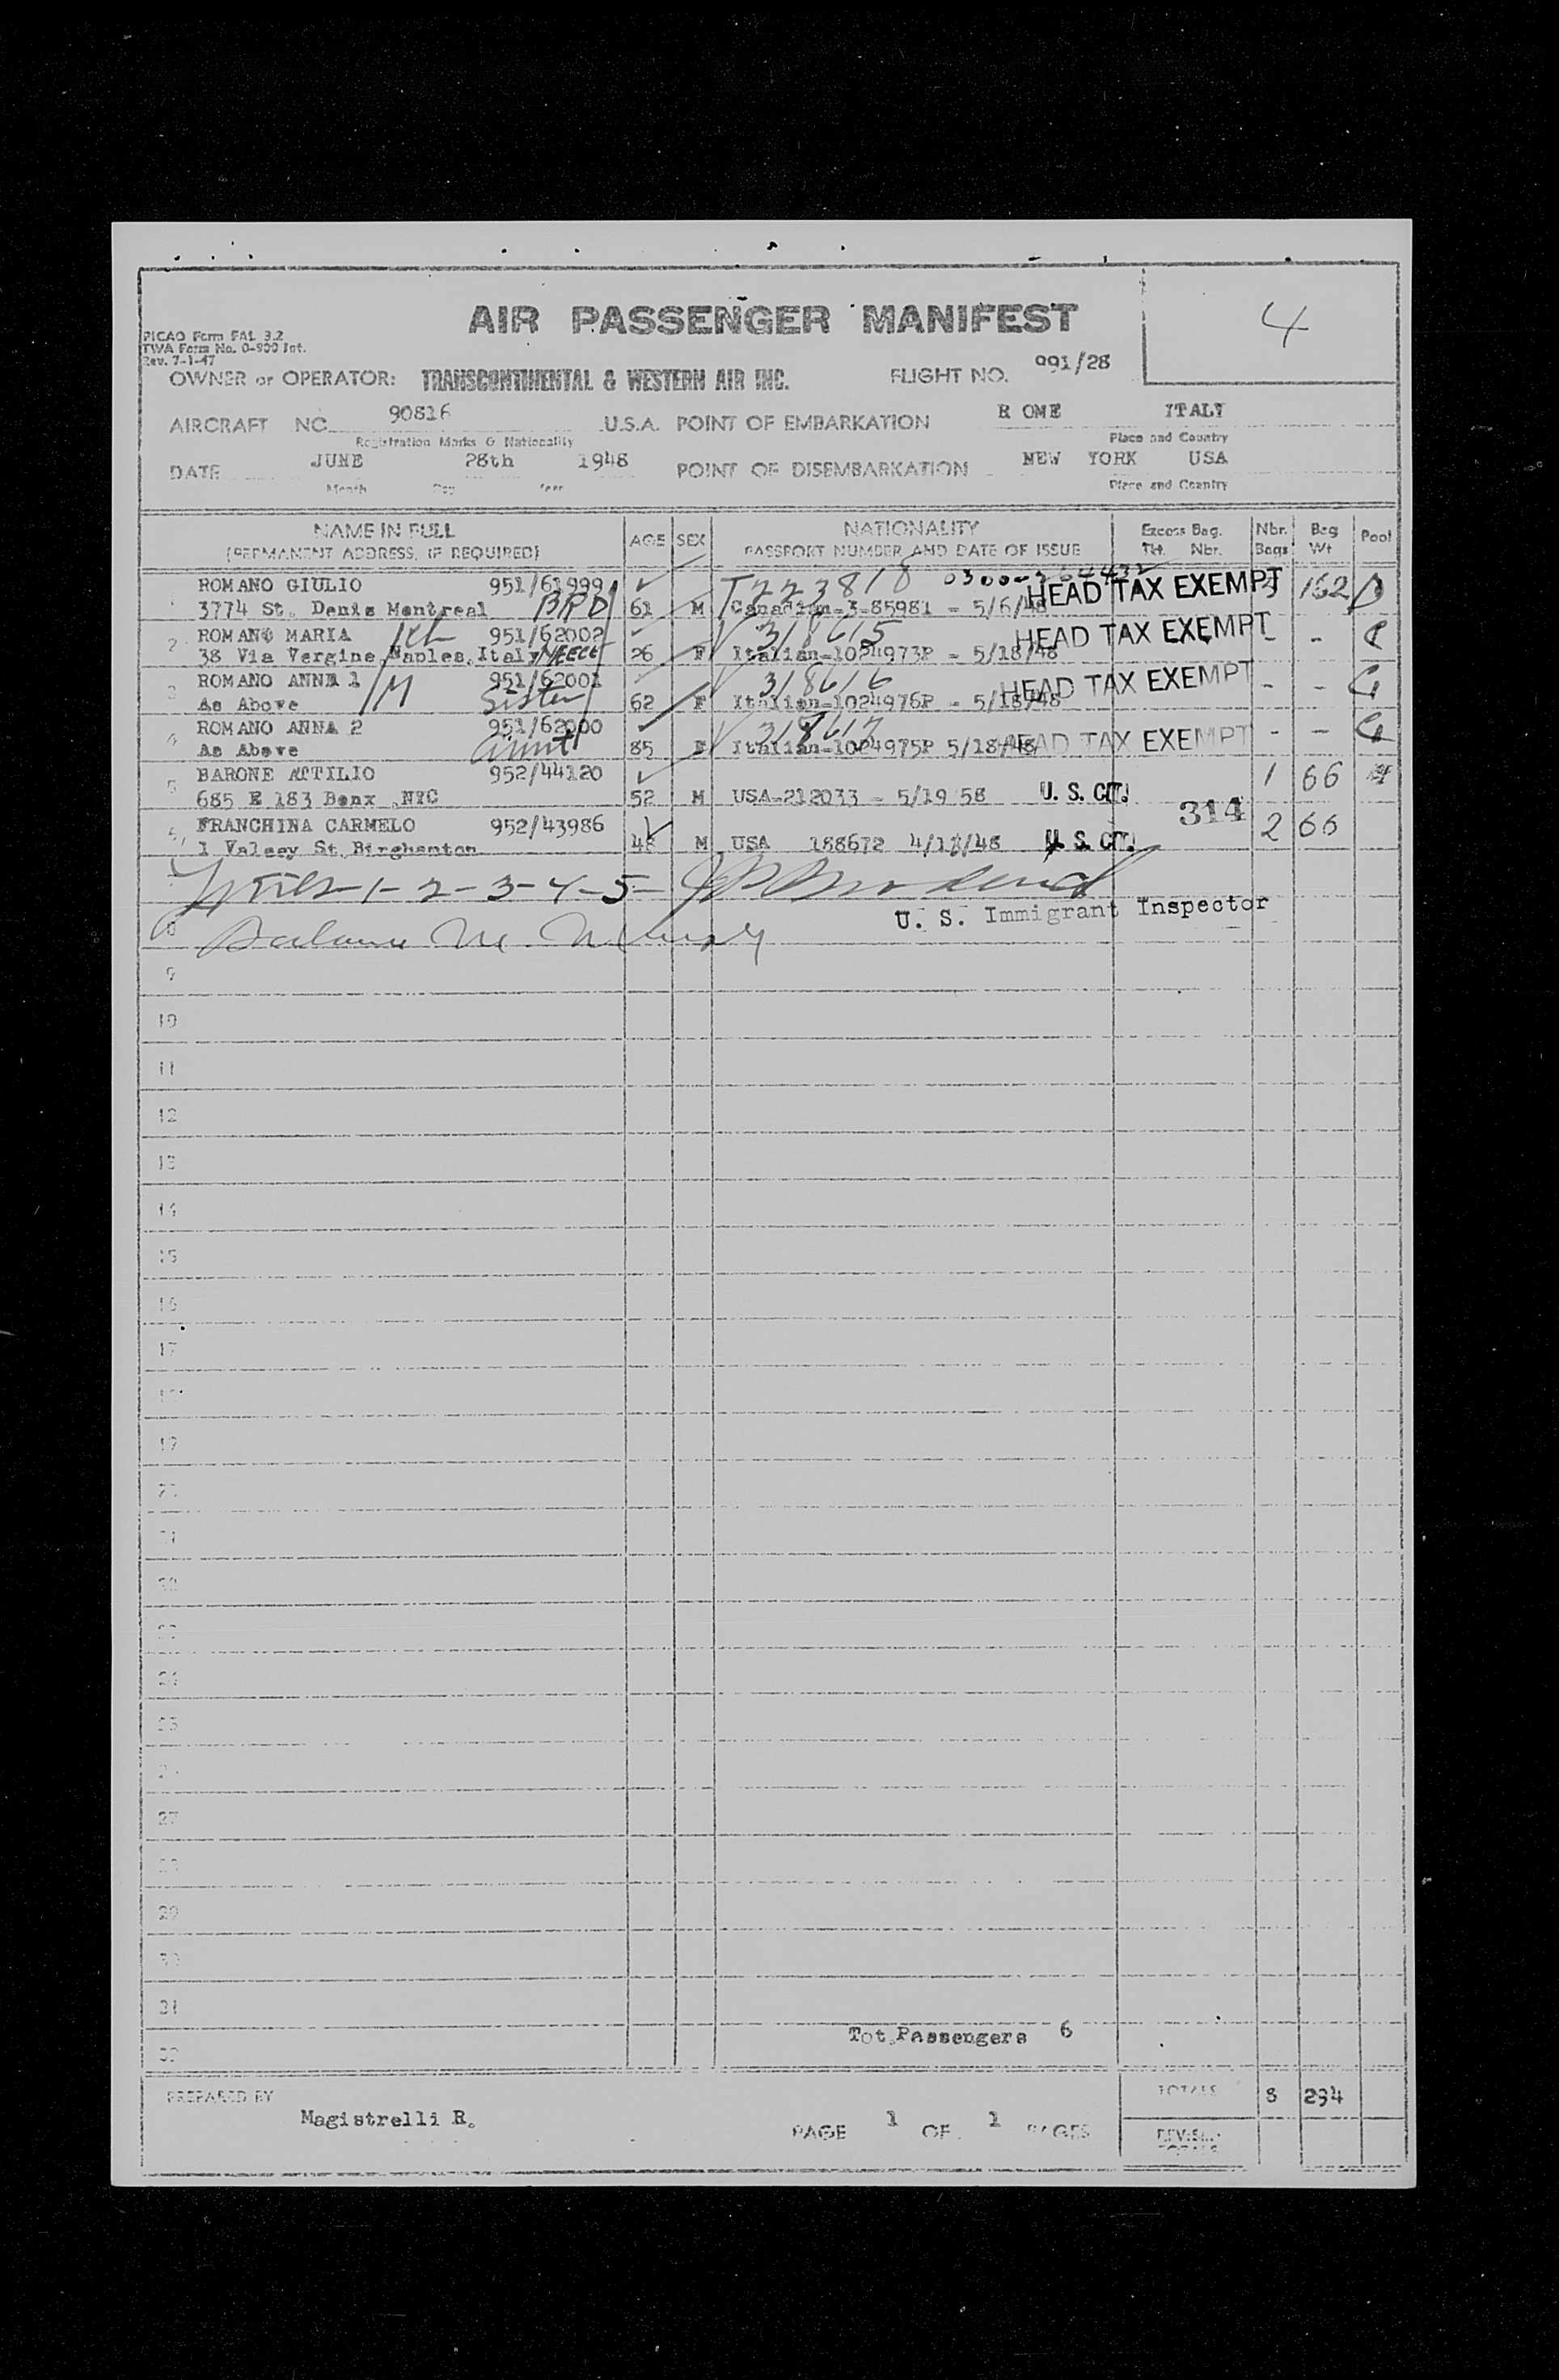 AIR PASSENGER MANIFEST
4
PICAO Form FAL 3.2
TWA Form No. 0-900 Int.
Rev. 7-1-47
OWNER or OPERATOR: TRANSCONTINENTAL & WESTERN AIR INC. FLIGHT NO. 991/28
AIRCRAFT NO. 90816 U.S.A. POINT OF EMBARKATION R OME ITALY
Registration Marks & Nationality Place and Country
DATE JUNE 28th 1948 POINT OF DISEMBARKATION NEW YORK USA
Month Day Year Place and Country
NAME IN FULL AGE SEX NATIONALITY Excess Bag. Nbr. Bag Pool
(PERMANENT ADDRESS, IF REQUIRED) PASSPORT NUMBER AND DATE OF ISSUE Tkt. Nbr. Bags Wt
1 ROMANO GIULIO 951/61999 T223818 HEAD TAX EXEMPT 162
3774 St. Denis Montreal 61 M Canadian-3-85981 - 5/6/48
2 ROMANO MARIA 951/62002 318615 HEAD TAX EXEMPT - -
38 Via Vergine, Naples, Italy NEECE 26 F Italian-1024973P - 5/18/48
3 ROMANO ANNA 1 951/62001 318616 HEAD TAX EXEMPT - -
As Above Sister 62 F Italian-1024976P - 5/18/48
4 ROMANO ANNA 2 951/62000 318617 HEAD TAX EXEMPT - -
As Above aunt 85 F Italian-1024975P 5/18/48
5 BARONE ATTILIO 952/44120 1 66
685 E 183 Bonx .NYC 52 M USA-212033 - 5/19 58 U. S. CIT. 314
6 FRANCHINA CARMELO 952/43986 2 66
1 Valsey St. Binghamton 48 M USA 188672 4/13/48 U. S. CIT.
1-2-3-4-5-
U. S. Immigrant Inspector
8
9
10
11
12
13
14
15
16
17
18
19
20
21
22
23
24
25
26
27
28
29
30
31
Tot.Passengers 6
32
PREPARED BY TOTALS 8 294
Magistrelli R. PAGE 1 OF 1 PAGES REVISED
TOTALS